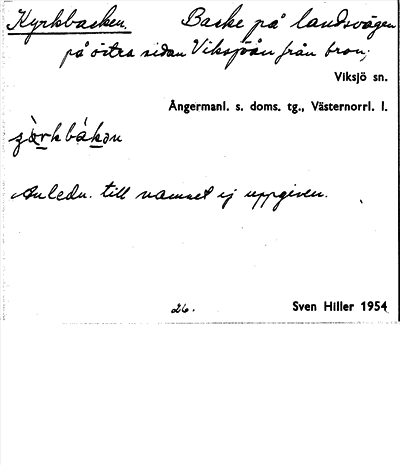 Kyrkbacken. Backe på landsvägen
på östra sidan Viksjöån från bron.
Viksjö sn.
Ångermanl. s. doms. tg., Västernorrl. l.
Anledn. till namnet ej uppgiven.
26. Sven Hiller 1954